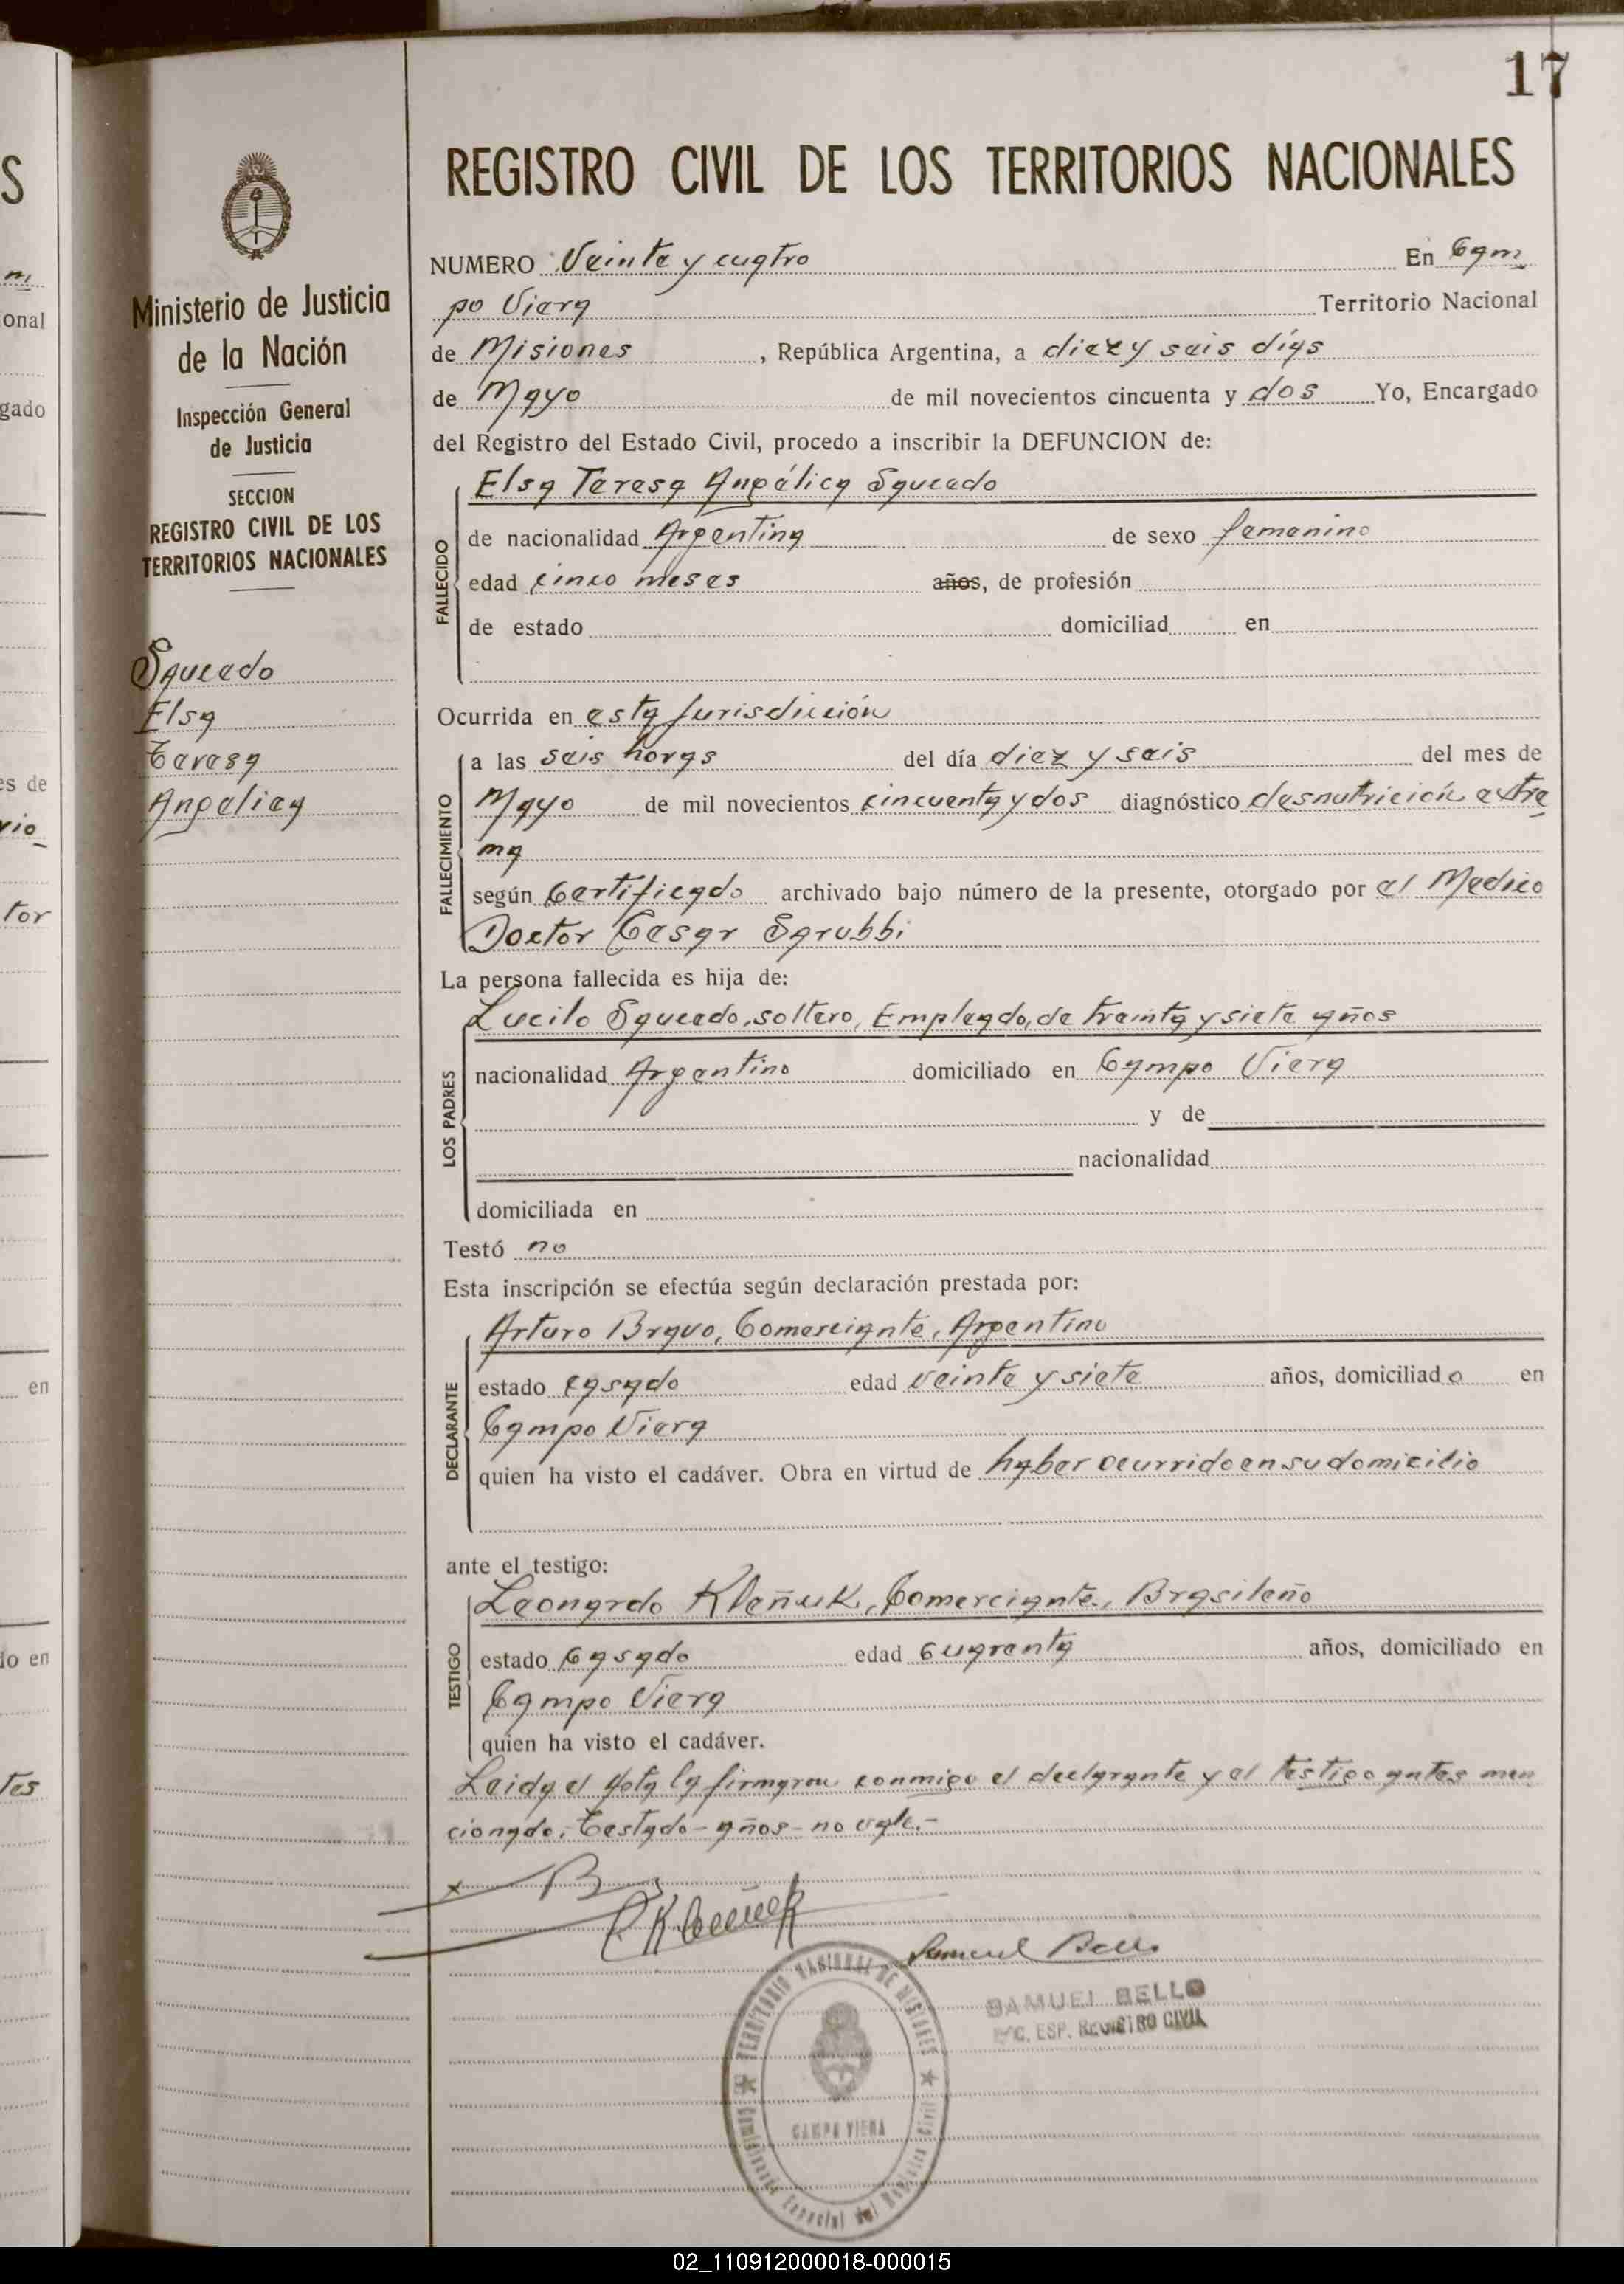 17
S
m
onal
gado
es de
rio_
tor
en
do en
tes
Ministerio de Justicia
de la Nación
Inspección General
de Justicia
SECCION
REGISTRO CIVIL DE LOS
TERRITORIOS NACIONALES
Saucedo
Elsa
Teresa
Angelica
REGISTRO CIVIL DE LOS TERRITORIOS NACIONALES
NUMERO Veinte y cuatro En Cam
po Viera Territorio Nacional
de Misiones , República Argentina, a diez y seis días
de Mayo de mil novecientos cincuenta y dos Yo, Encargado
del Registro del Estado Civil, procedo a inscribir la DEFUNCION de:
Elsa Teresa Angélica Saucedo
FALLECIDO
de nacionalidad Argentina de sexo femenino
edad cinco meses años, de profesión
de estado domiciliad en
Ocurrida en esta Jurisdicción
FALLECIMIENTO
a las seis horas del día diez y seis del mes de
Mayo de mil novecientos cincuenta y dos diagnóstico desnutrición extre
ma
según Certificado archivado bajo número de la presente, otorgado por el Medico
Doctor Cesar Sarubbi
La persona fallecida es hija de:
LOS PADRES
Lucilo Saucedo, soltero, Empleado, de treinta y siete años
nacionalidad Argentino domiciliado en Campo Viera
y de
nacionalidad
domiciliada en
Testó no
Esta inscripción se efectúa según declaración prestada por:
DECLARANTE
Arturo Bravo, Comerciante, Argentino
estado casado edad veinte y siete años, domiciliado en
Campo Viera
quien ha visto el cadáver. Obra en virtud de haber ocurrido en su domicilio
ante el testigo:
TESTIGO
Leonardo Kleñuk, Comerciante, Brasileño
estado Casado edad Cuarenta años, domiciliado en
Campo Viera
quien ha visto el cadáver.
Leida el Acta la firmaron conmigo el declarante y el testigo antes men
cionado. Testado - años - no vale.-
Samuel Bello
SAMUEL BELLO
ESP. REGISTRO CIVIL
TERRITORIO NACIONAL DE MISIONES
CAMPO VIERA
Especial del Registro Civil
02_110912000018-000015